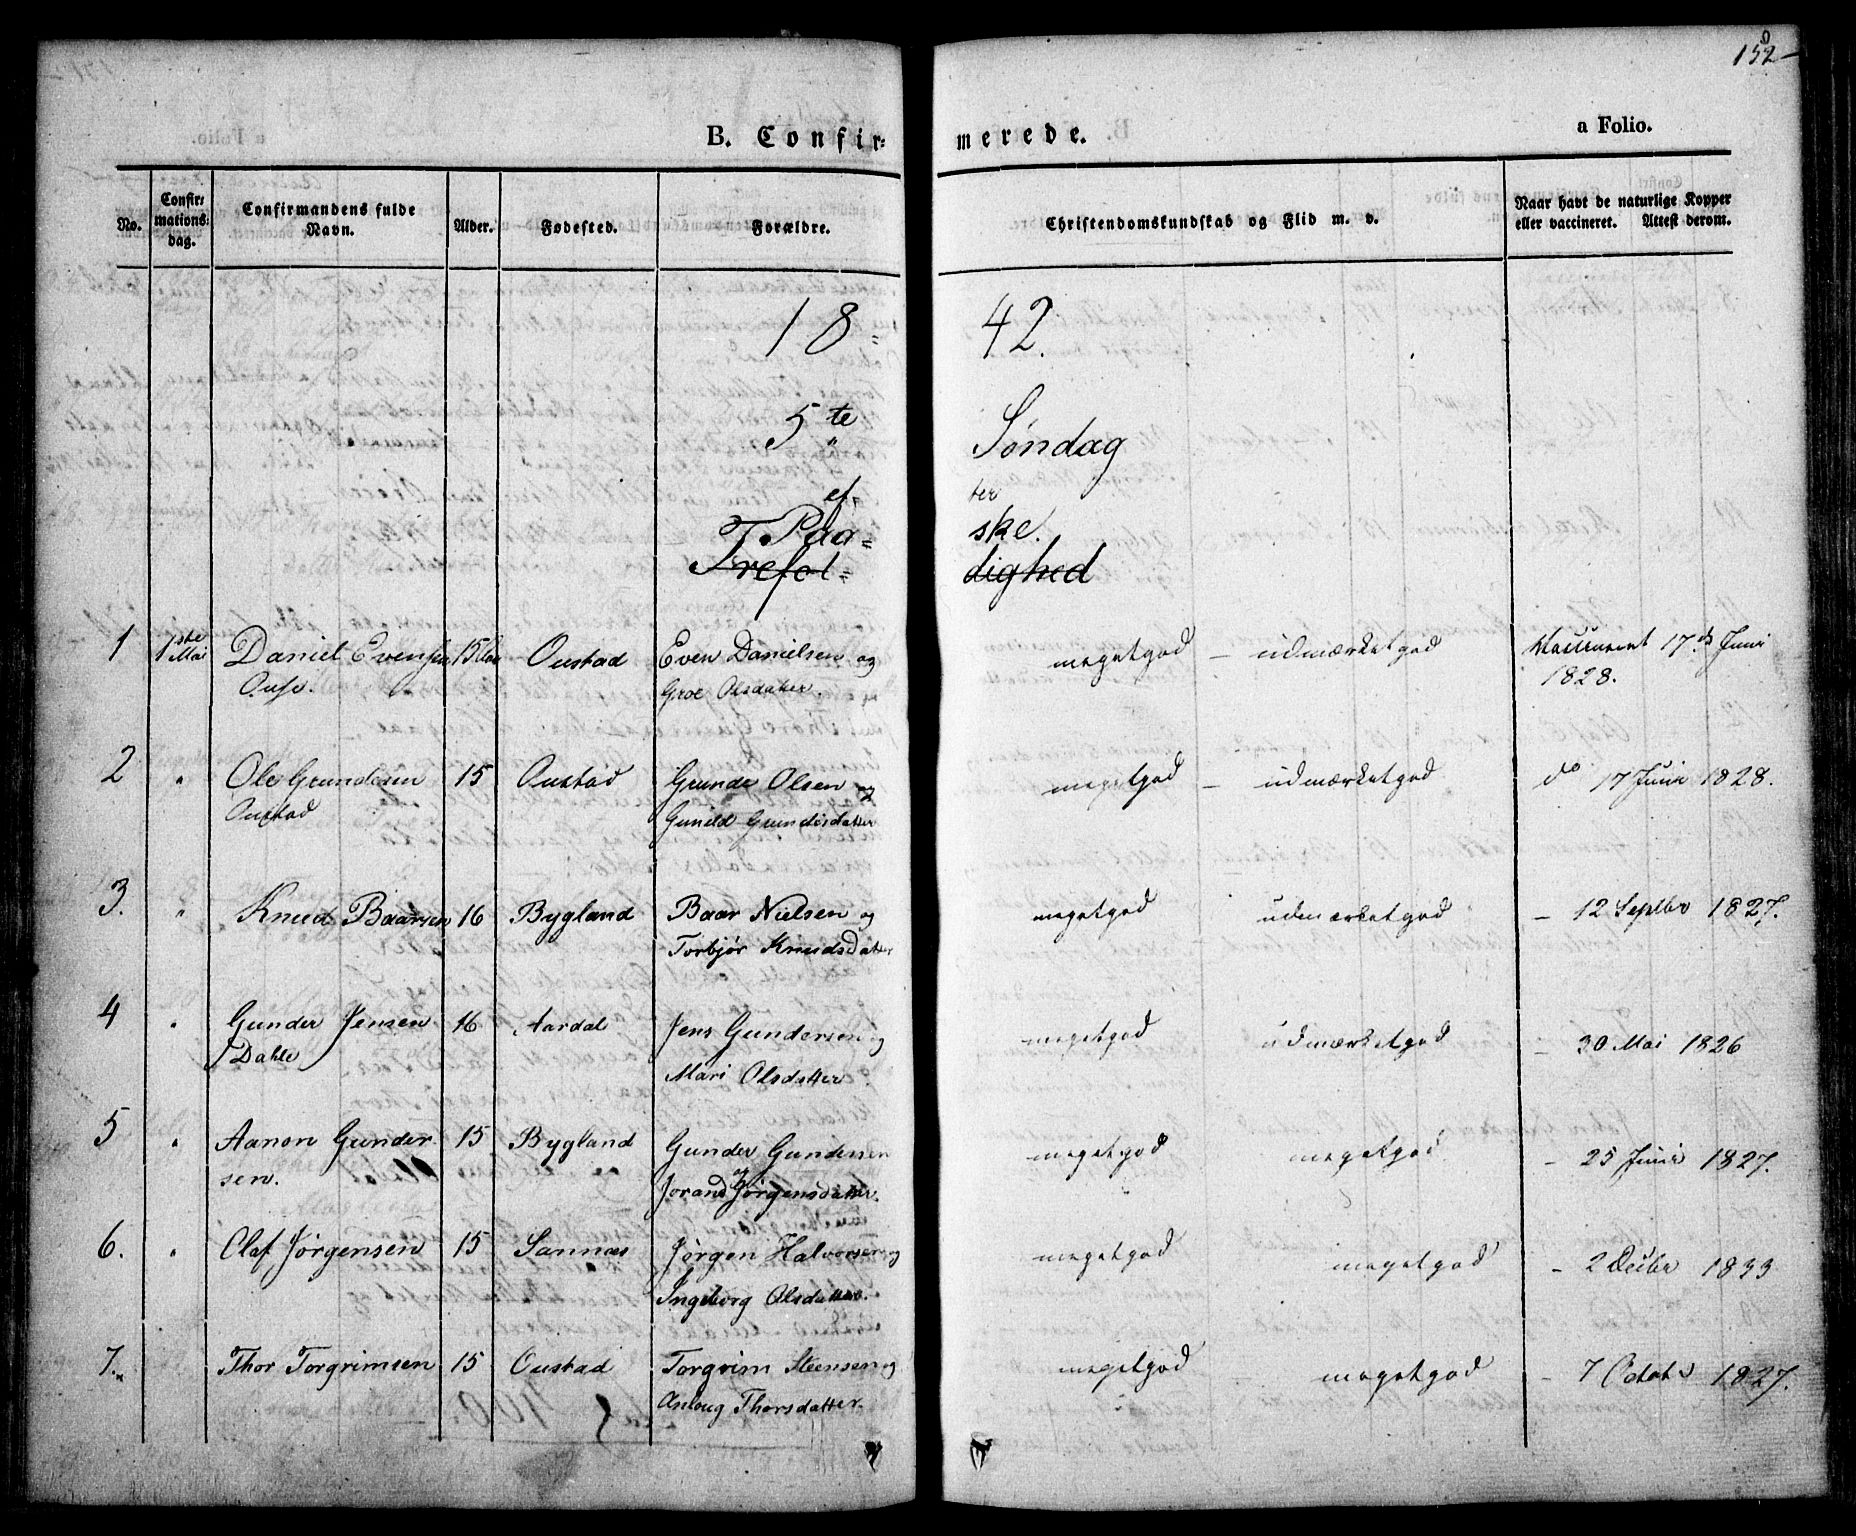 152
B. Confir- merede.
a Folio.
No.
Confir-
mations-
dag.
Confirmandens fulde
Navn.
Alder.
Fødested.
Forældre.
Christendomskundskab og Flid m. v.
Naar havt de naturlige Kopper
eller vaccineret. Attest derom.
18= 42.
5te Søndag
ef- ter
Paa= ske.
Trefol= dighed
1 1ste Mai Daniel Evensen 15 Oustad Even Danielsen og megetgod – udmærketgod Vaccineret 17de Juni
Ouse. Groe Olsdatter. 1828.
2 " Ole Grundesen 15 Oustad Grunde Olsen og megetgod – udmærketgod do 17 Juni 1828.
Oustad Gunild Grundesdatter
3. " Knud Baarsen 16 Bygland Baar Nielsen og megetgod udmærketgod – 12 Septbr 1827.
Torbjør Knudsdatter
4 " Gunder Jensen 16 Aardal Jens Gundersen og megetgod udmærketgod – 30 Mai 1826
Dahle Mari Olsdatter
5 " Aanon Gunder 15 Bygland Gunder Gundersen megetgod megetgod – 25 Juni 1827.
sen. og
Jorand Jørgensdatter.
6. " Olaf Jørgensen 15 Sannæs Jørgen Halvorsen og megetgod megetgod – 2 Decbr 1833
Ingeborg Olsdatter.
7. " Thor Torgrimsen 15 Oustad Torgrim Steensen og megetgod megetgod – 7 Octob 1827.
Anlaug Thorsdatter.